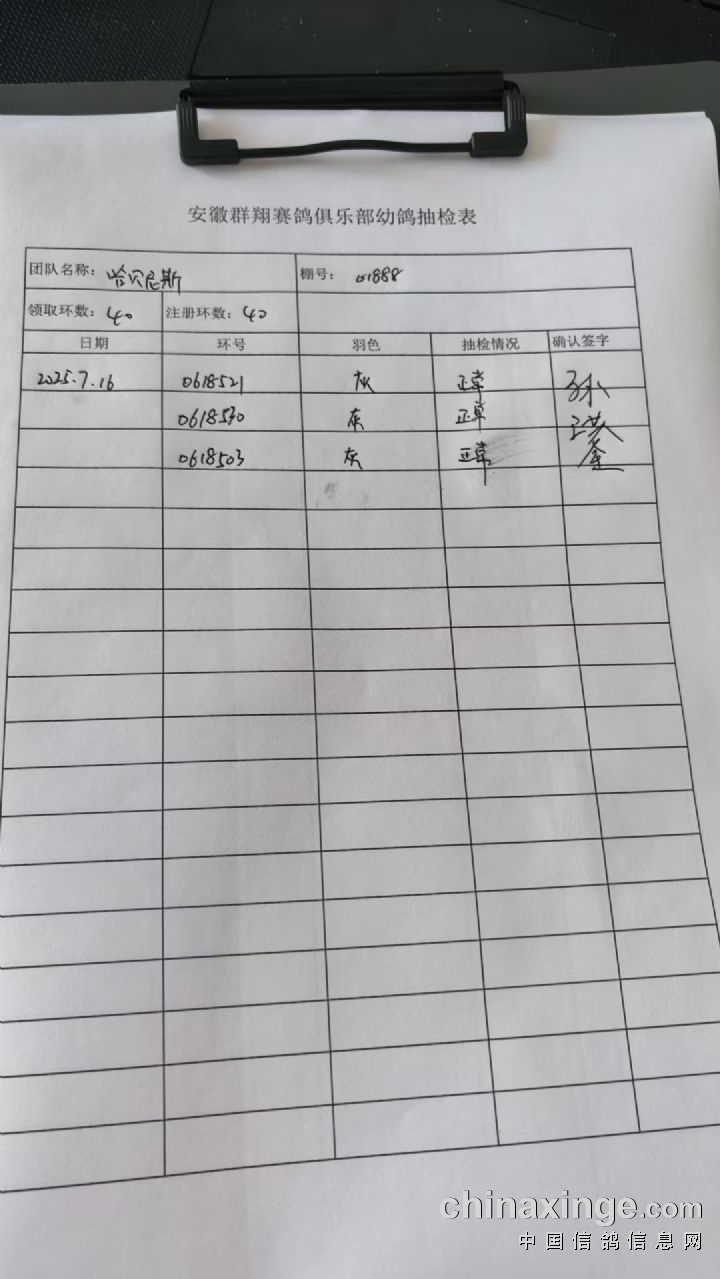 安徽群翔赛鸽俱乐部幼鸽抽检表
团队名称：哈贝尼斯 棚号：01888
领取环数：40 注册环数：40
日期 环号 羽色 抽检情况 确认签字
2025.7.16 0618521 灰 正常
0618530 灰 正常
0618503 灰 正常
chinaxinge.com
中国信鸽信息网